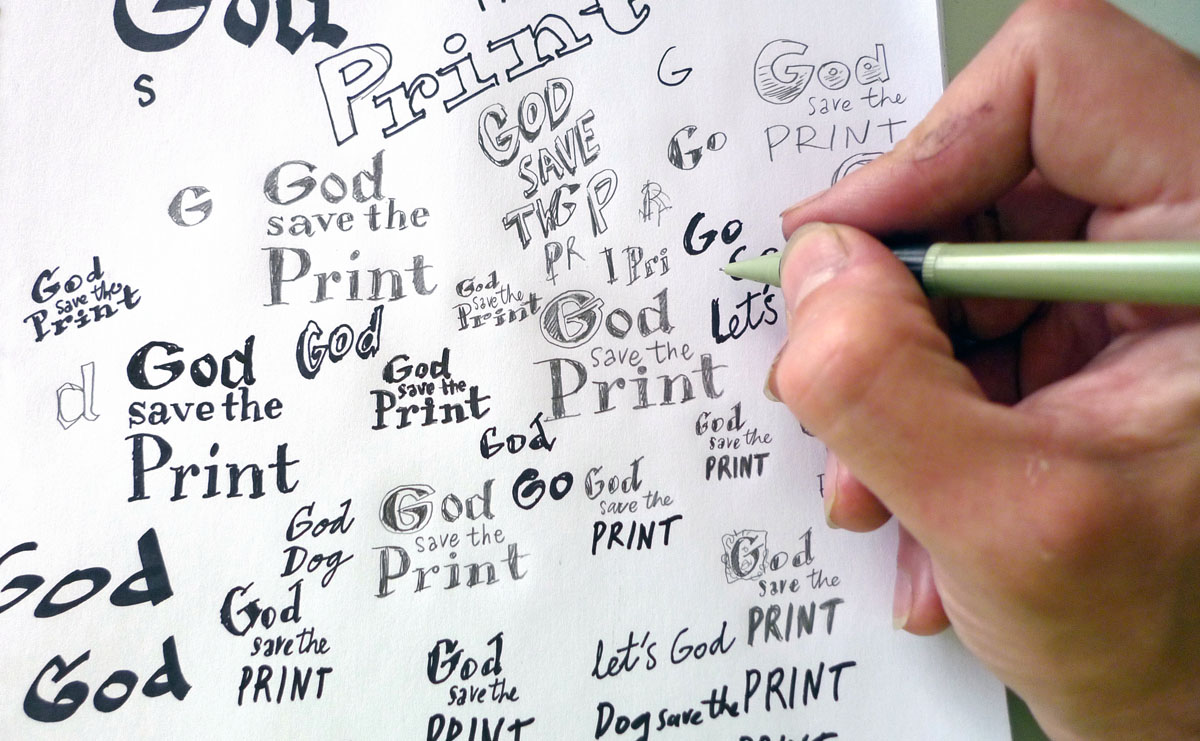 God
Print
S
G
God
save the
PRINT
GOD
SAVE
Go
G
God
save the
Print
P
R
PR
Pri
Go
Let's
God
save the
Print
God
save the
Print
God
save the
Print
God
d
God
save the
Print
God
save the
Print
God
God
save the
PRINT
God
Dog
God
save the
Print
Go
God
save the
PRINT
God
God
save the
PRINT
God
save the
PRINT
God
God
save the
PRINT
let's God
Dog save the PRINT
PRINT